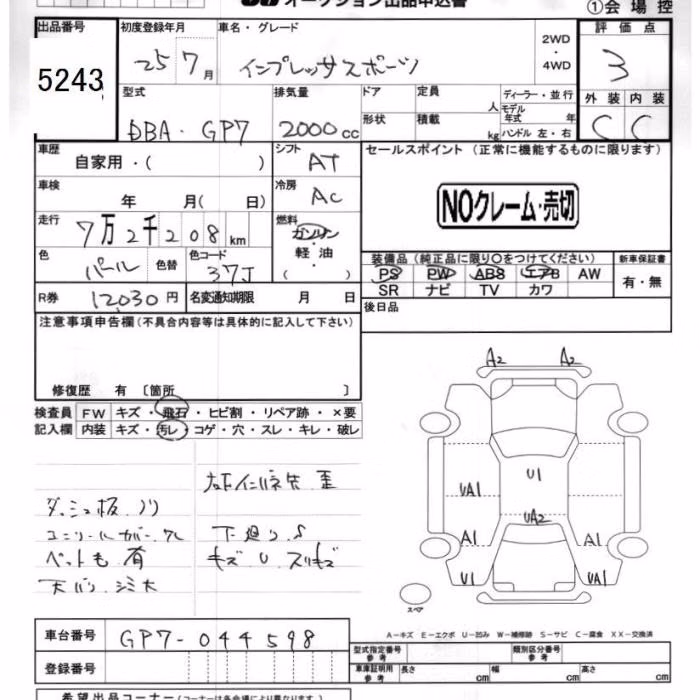 オークション出品申込書
①会場控
出品番号 初度登録年月 車名・グレード 2WD・4WD 評価点
5243 25 7月 インプレッサスポーツ 3
型式 排気量 ドア 定員 人 ディーラー・並行 外装 内装
DBA・GP7 2000cc 形状 積載 kg モデル年式 年 ハンドル 左・右 C C
車歴 自家用・( ) シフト AT セールスポイント (正常に機能するものに限ります)
車検 年 月( 日) 冷房 AC NOクレーム・売切
走行 7万2千208km 燃料 ガソリン・軽油・( )
色 パール 色替 色コード 37J
装備品 (純正品に限り○をつけてください) 新車保証書
PS PW ABS エアB AW 有・無
SR ナビ TV カワ
R券 12,030円 名変通知期限 月 日 後日品
注意事項申告欄(不具合内容等は具体的に記入して下さい)
修復歴 有 〔箇所 〕
検査員 FW キズ・飛石・ヒビ割・リペア跡・×要
記入欄 内装 キズ・汚レ・コゲ・穴・スレ・キレ・破レ
A2 A2
U1
UA1
UA2
A1 A1
U1 UA1
スペア
ダッシュ板 ノリ
下廻り S
ペットも 有
キズ U スリキズ
A-キズ E-エクボ U-凹み W-補修跡 S-サビ C-腐食 XX-交換済
車台番号 GP7-044598
登録番号
型式指定番号 参考 類別区分番号 参考
車庫証明用 参考 長さ cm 幅 cm 高さ cm
希望出品コーナー